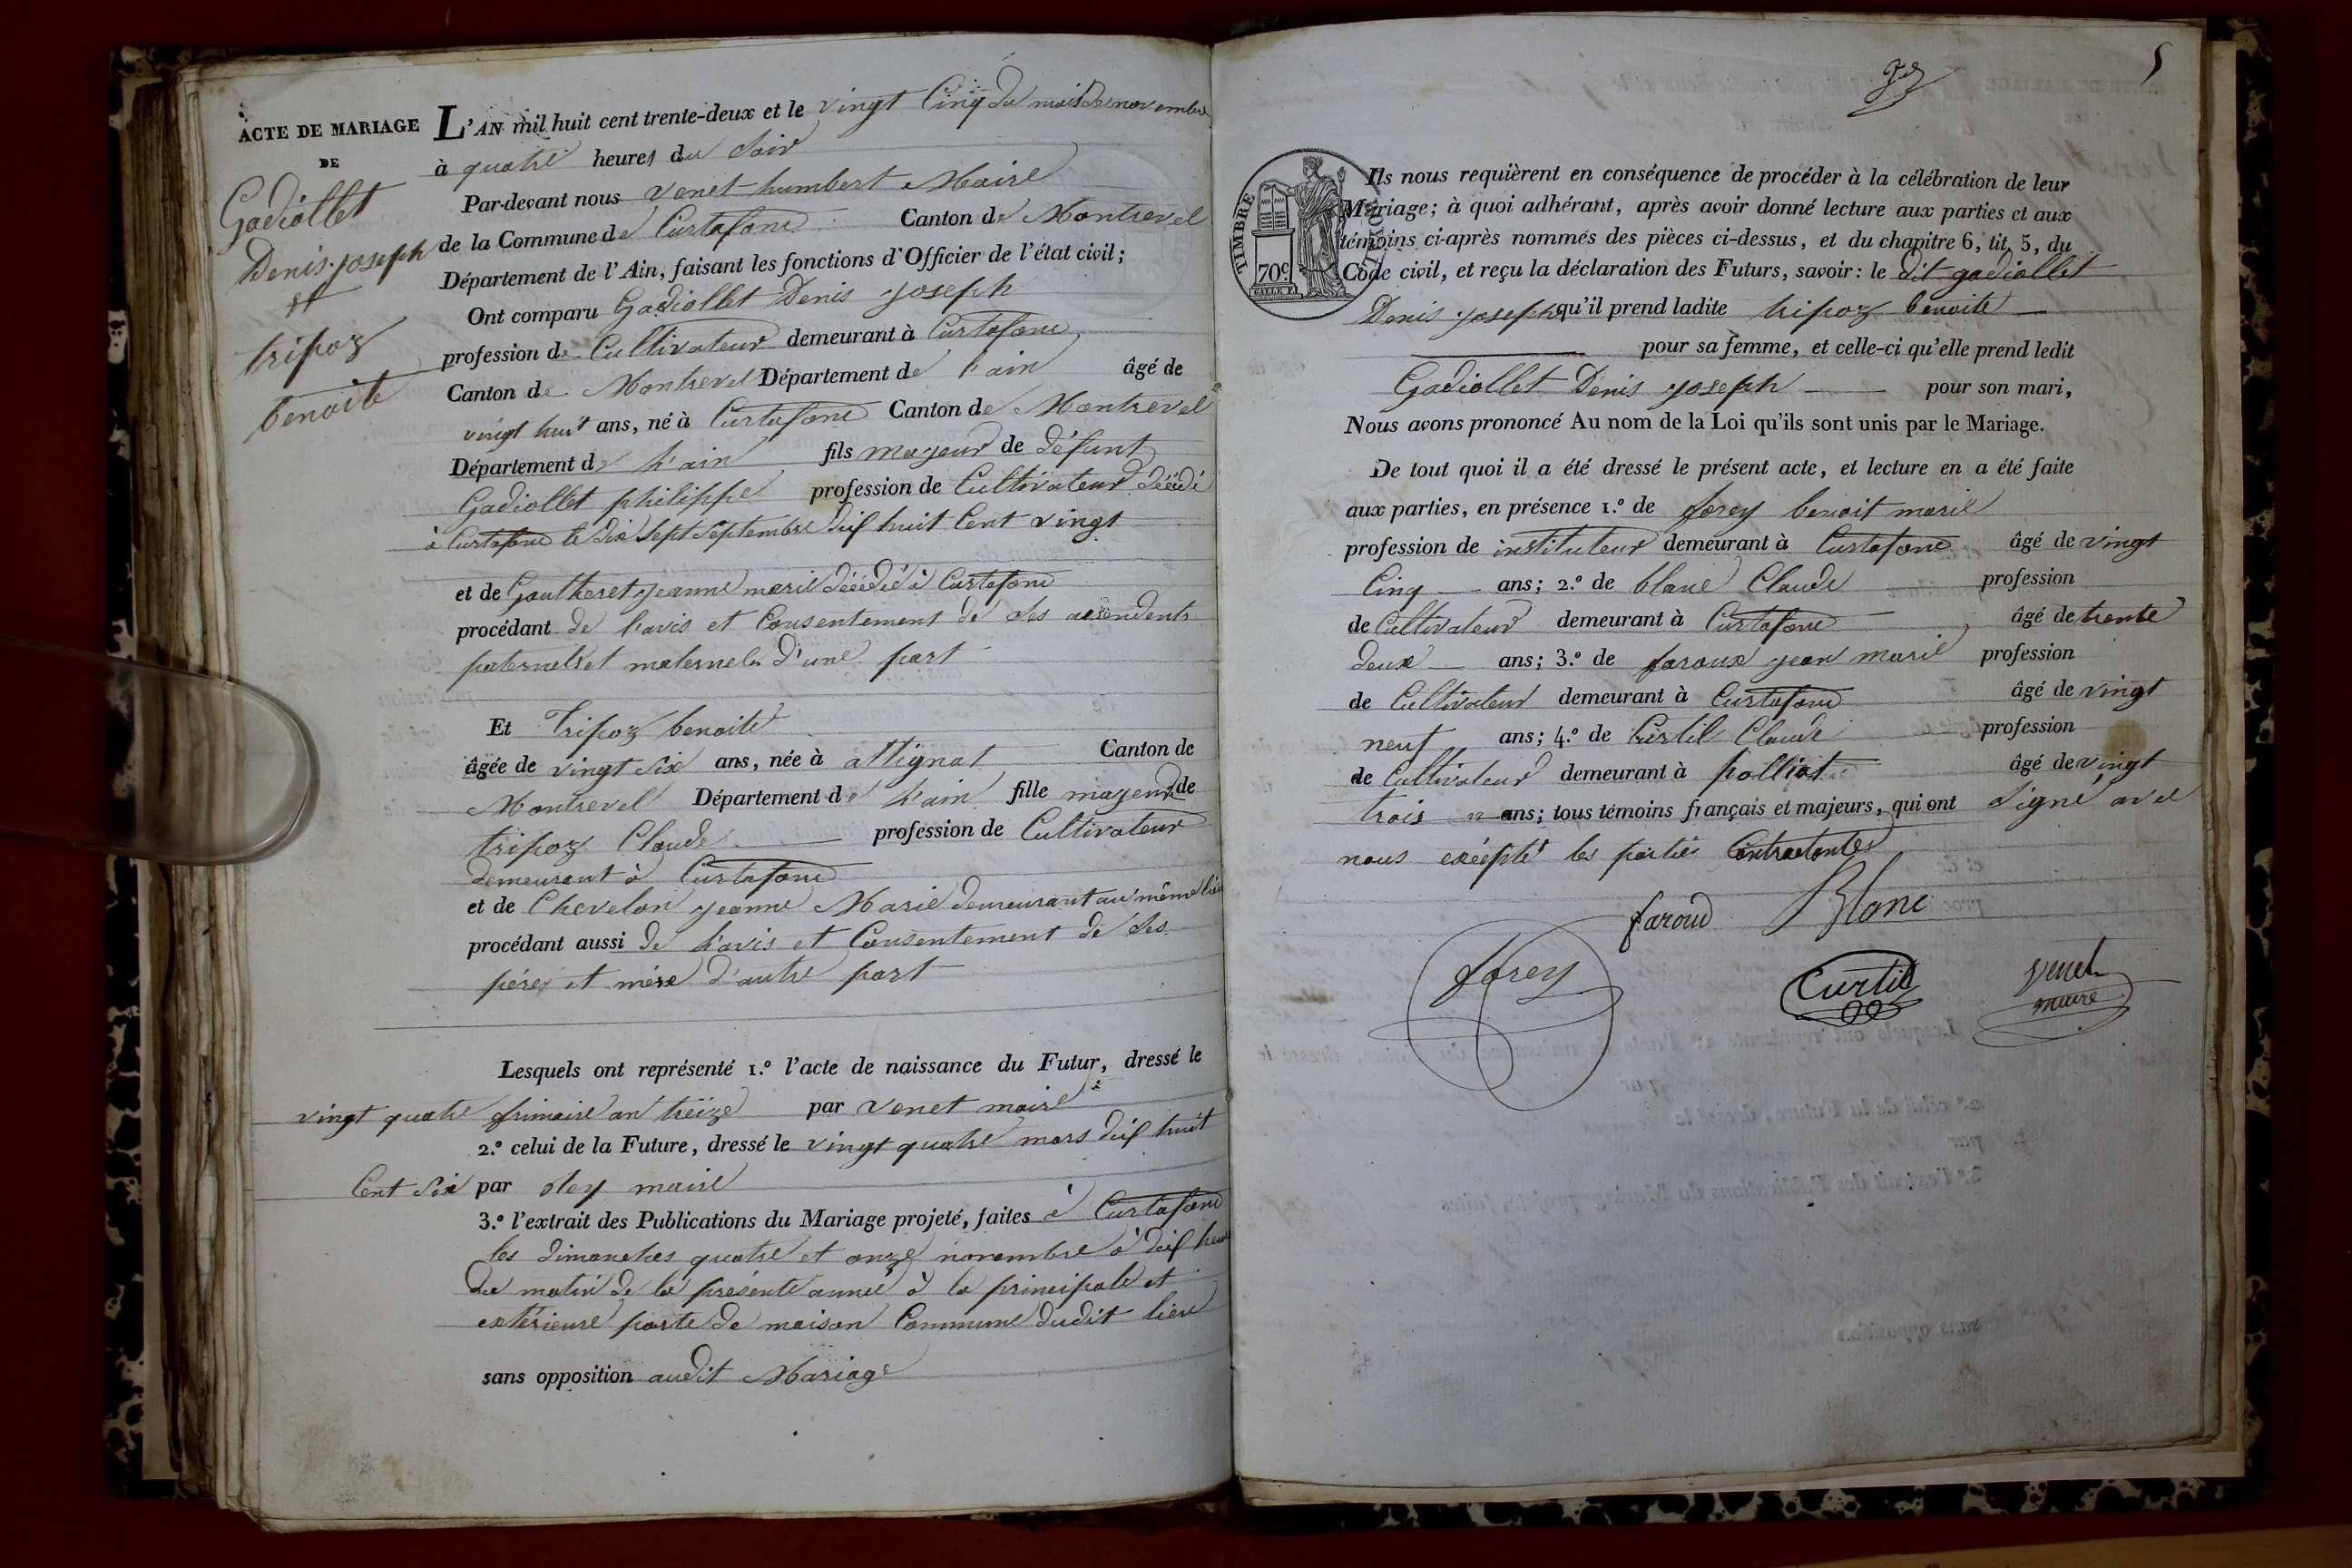 ACTE DE MARIAGE
DE
Gadiollet
Denis joseph
et
tripoz
benoite
L'AN mil huit cent trente-deux et le vingt Cinq du mois de novembre
à quatre heures du Soir
Par-devant nous Venet humbert Maire
de la Commune de Curtafond Canton de Montrevel
Département de l'Ain, faisant les fonctions d'Officier de l'état civil;
Ont comparu Gadiollet Denis joseph
profession de Cultivateur demeurant à Curtafond
Canton de Montrevel Département de l'ain âgé de
vingt huit ans, né à Curtafond Canton de Montrevel
Département de l'ain fils majeur de défunt
Gadiollet philippe profession de Cultivateur décédé
à Curtafond le dix Sept Septembre dix huit Cent vingt
et de Goutheret jeanne marie décédée à Curtafond
procédant de l'avis et Consentement de ses ascendents
paternels et maternels d'une part
Et Tripoz benoite
âgée de vingt Six ans, née à attignat Canton de
Montrevel Département de l'ain fille majeure de
tripoz Claude profession de Cultivateur
demeurant à Curtafond
et de Chevelon jeanne Marie demeurant au même lieu
procédant aussi de l'avis et Consentement de ses
pére et mére d'autre part
Lesquels ont représenté 1.º l'acte de naissance du Futur, dressé le
vingt quatre frimaire an treize par Venet maire
2.º celui de la Future, dressé le vingt quatre mars dix huit
Cent Six par maire
3.º l'extrait des Publications du Mariage projeté, faites à Curtafond
les dimanches quatre et onze novembre à dix heures
du matin de la présente année à la principale et
extérieure porte de maison Commune dudit lieu
sans opposition audit Mariage
5
TIMBRE ROYAL
70c
Ils nous requièrent en conséquence de procéder à la célébration de leur
Mariage; à quoi adhérant, après avoir donné lecture aux parties et aux
témoins ci-après nommés des pièces ci-dessus, et du chapitre 6, tit, 5, du
Code civil, et reçu la déclaration des Futurs, savoir: le dit gadiollet
Denis joseph qu'il prend ladite tripoz benoite
pour sa femme, et celle-ci qu'elle prend ledit
Gadiollet Denis joseph pour son mari,
Nous avons prononcé Au nom de la Loi qu'ils sont unis par le Mariage.
De tout quoi il a été dressé le présent acte, et lecture en a été faite
aux parties, en présence 1.º de forey benoit marie
profession de instituteur demeurant à Curtafond âgé de vingt
Cinq ans; 2.º de blanc Claude profession
de Cultivateur demeurant à Curtafond âgé de trente
deux ans; 3.º de faroux jean marie profession
de Cultivateur demeurant à Curtafond âgé de vingt
neuf ans; 4.º de Curtil Claude profession
de Cultivateur demeurant à polliat âgé de vingt
trois ans; tous témoins français et majeurs, qui ont Signé avec
nous excépté les parties Contractantes
faroud Blanc
forey
Curtil
Venet
maire